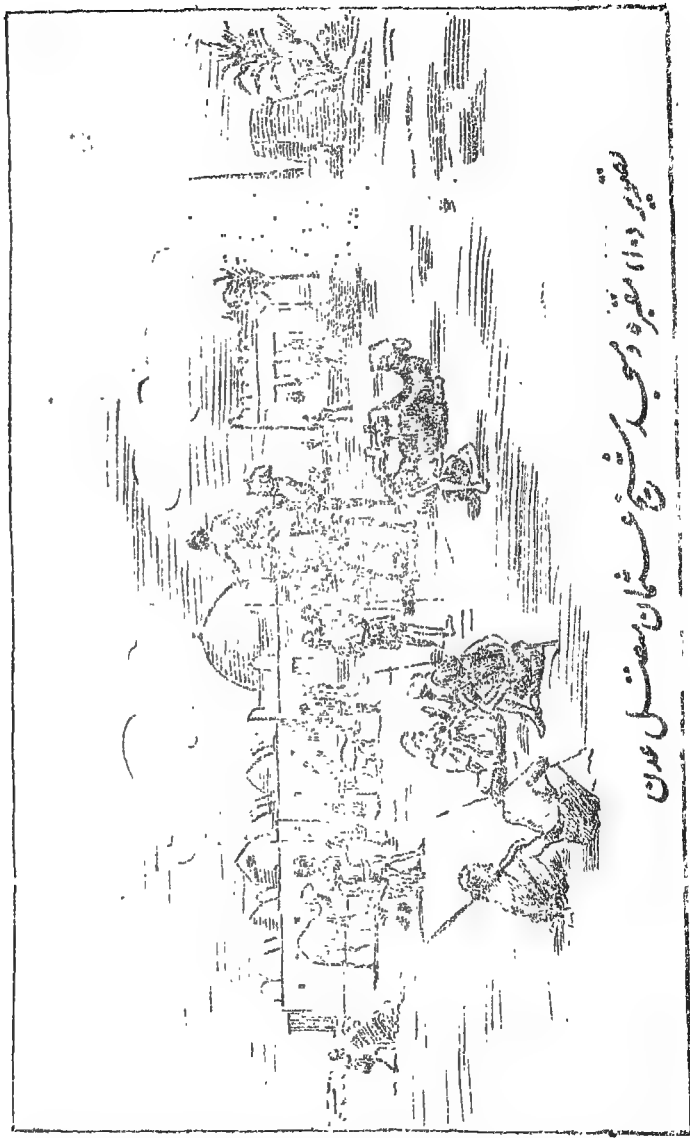 تصویر (۱۰) مقبرۃ و مسجد شیخ عثمان متصل عدن